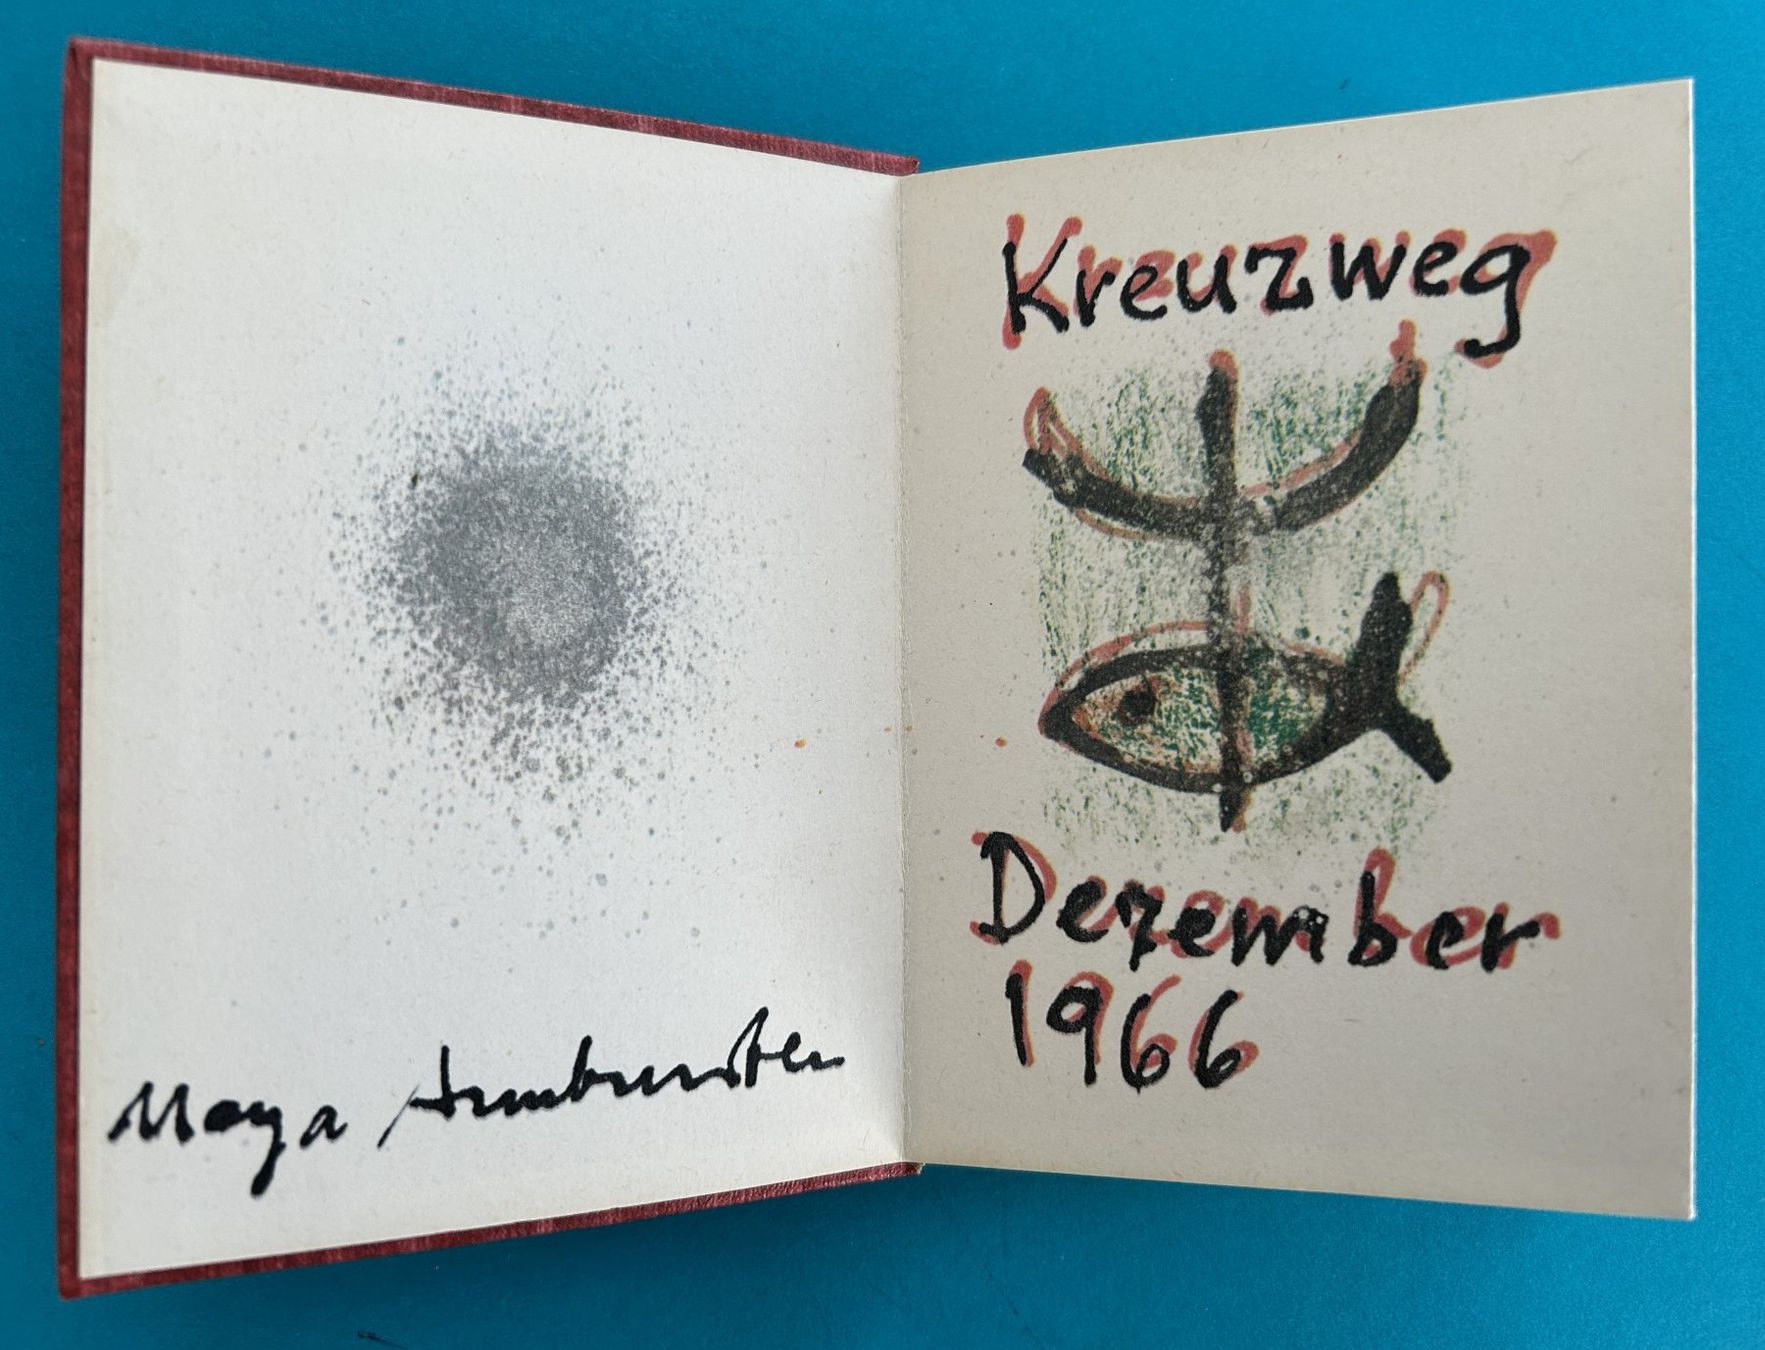 Maya
Kreuzweg
Dezember
1966